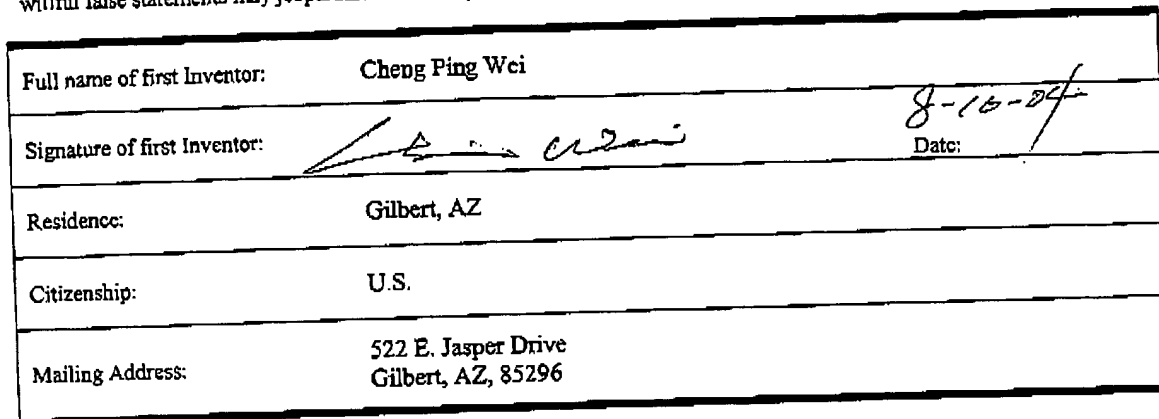 willful false statements may
Full name of first Inventor: Cheng Ping Wei
8-10-04
Signature of first Inventor: Date:
Residence: Gilbert, AZ
Citizenship: U.S.
Mailing Address: 522 E. Jasper Drive
Gilbert, AZ, 85296